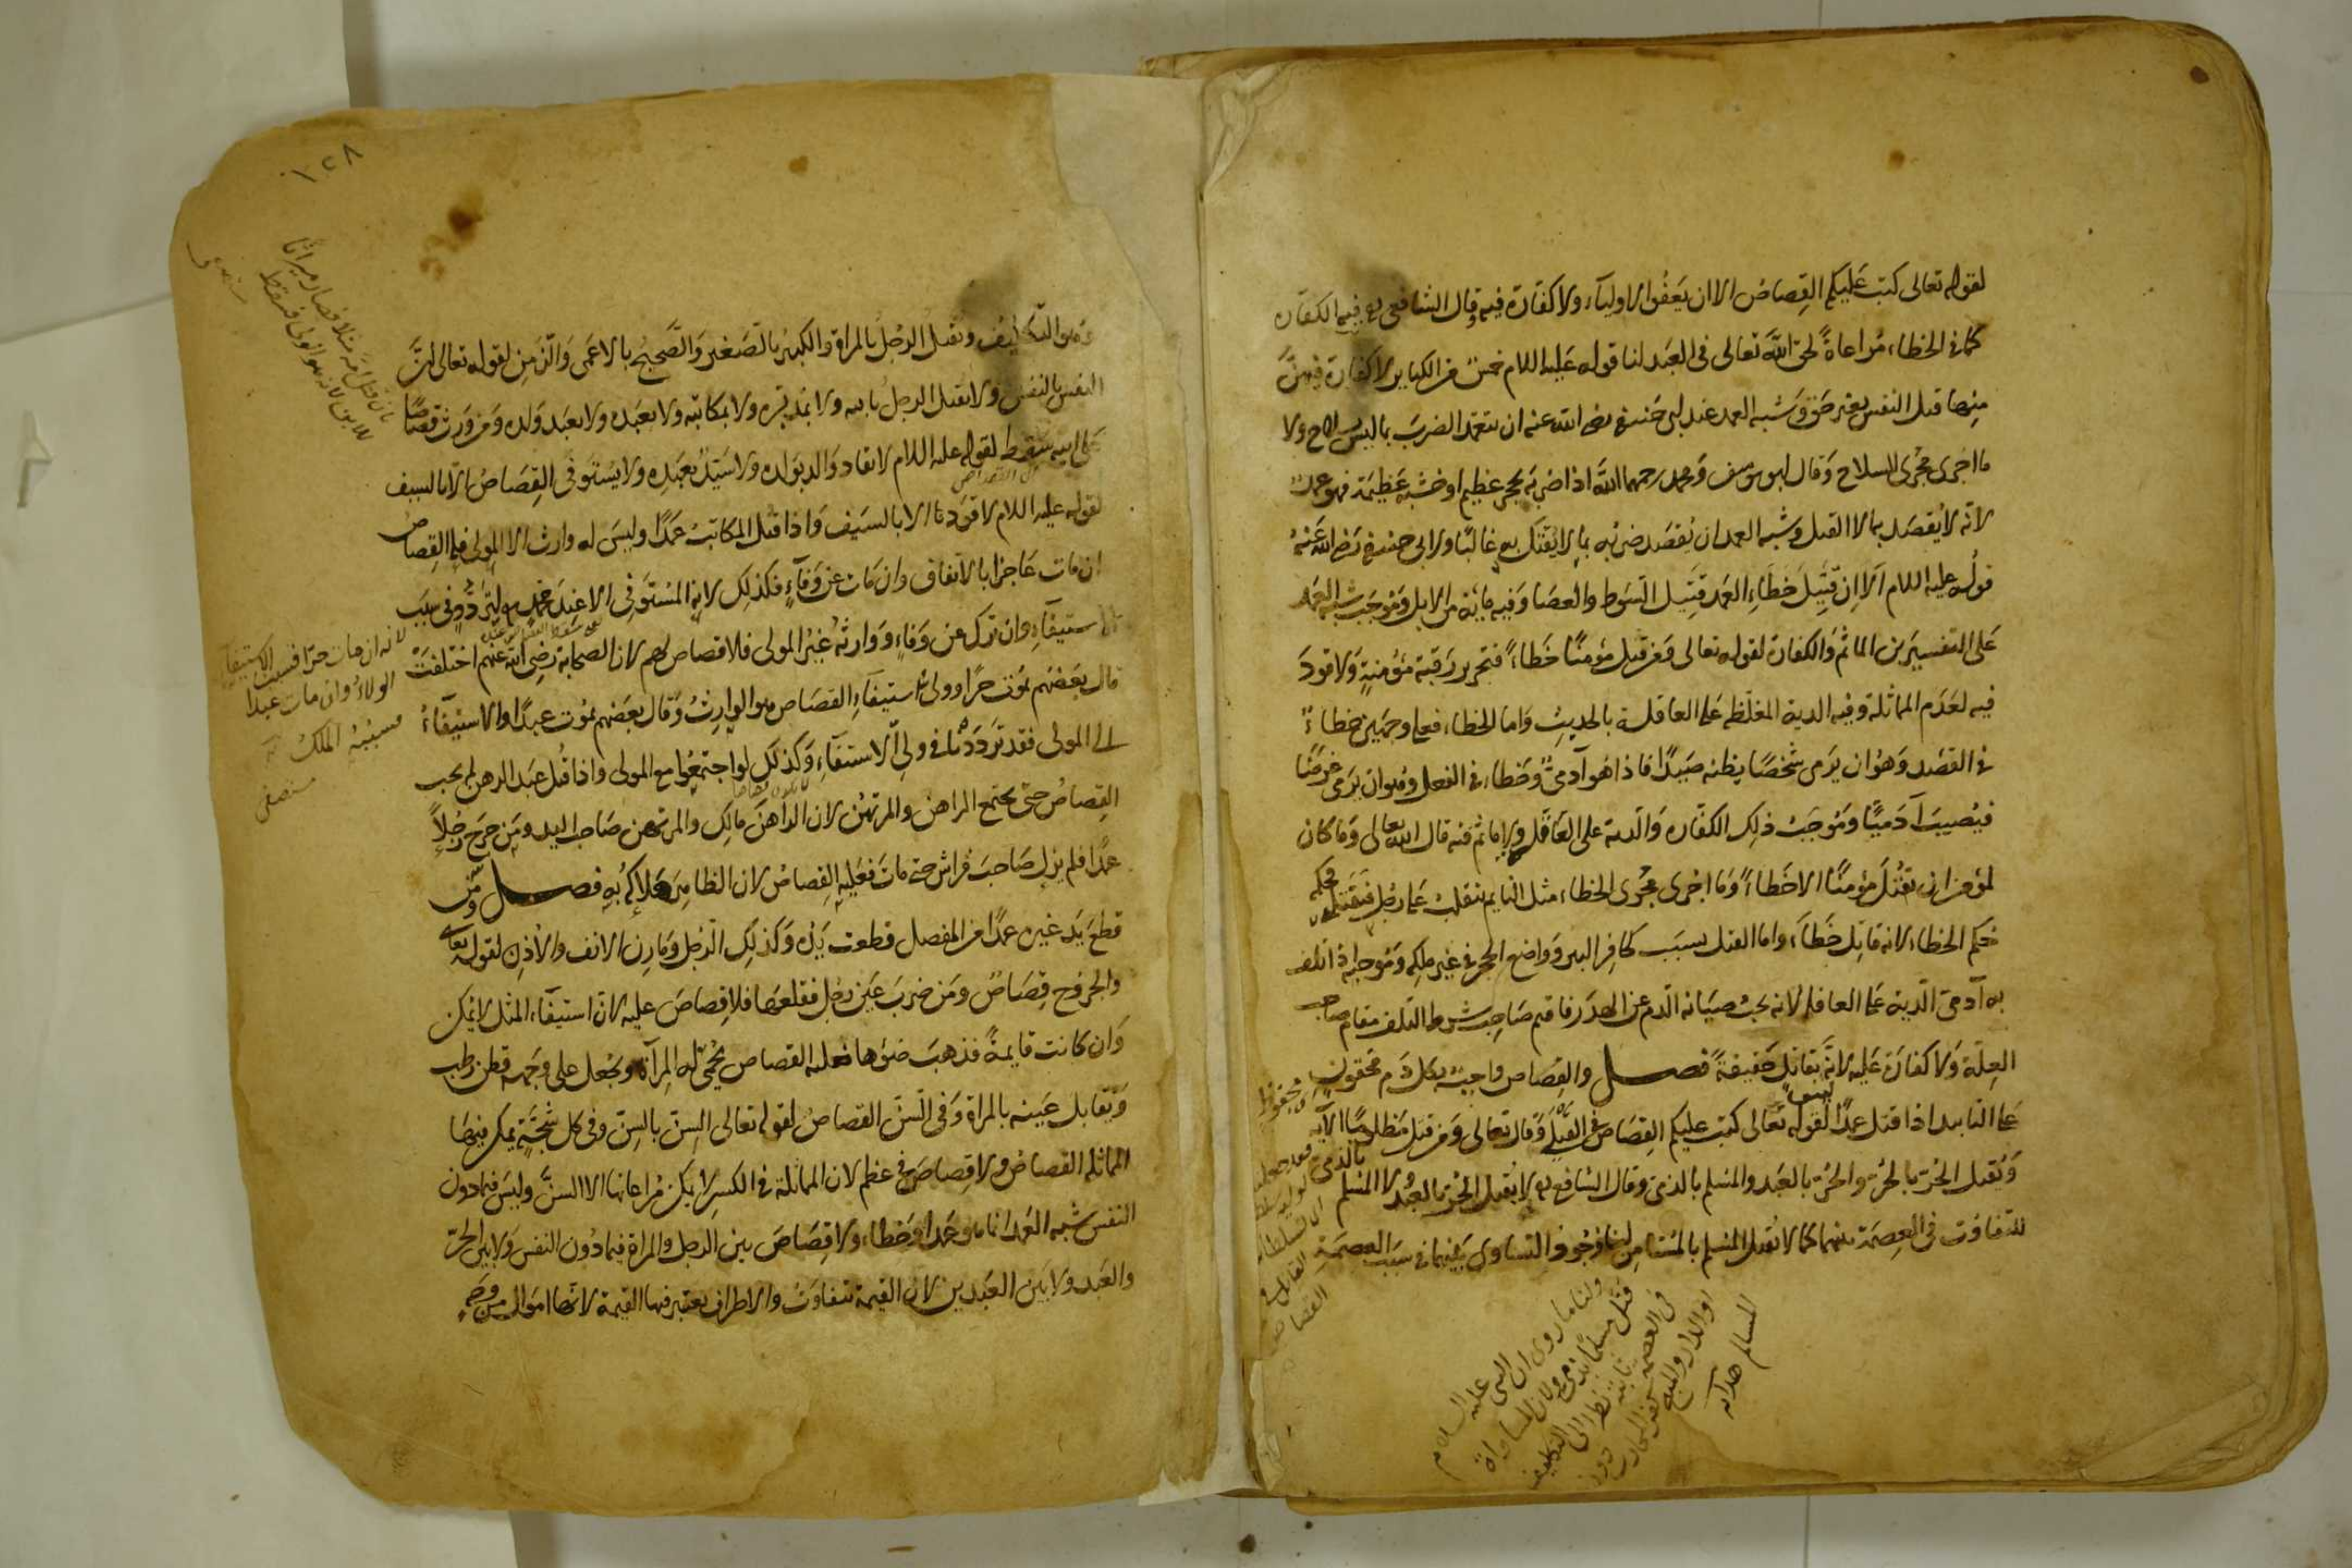 لقوله تعالى كتب عليكم القصاص الا ان يعفوا الاولياء ولا كفارة فيه وقال الشافعي رح فيه الكفارة
كما في الخطاء مراعاة لحق الله تعالى في العبد لنا قوله عليه السلام خمس من الكباير لا كفارة فيهن
منها قتل النفس بغير حق وشبه العمد عند ابي حنيفة رضي الله عنه ان يتعمد الضرب بما ليس بسلاح ولا
ما اجرى مجرى السلاح وقال ابو يوسف ومحمد رحمهما الله اذا ضربه بحجر عظيم او خشبة عظيمة فهو عمد
لانه لا يقصد به الا القتل وشبه العمد ان يقصد ضربه بما لا يقتل به غالبا ولابي حنيفة رضي الله عنه
قوله عليه السلام الا ان قتيل خطاء العمد قتيل السوط والعصا وفيه مائة من الابل وموجب شبه العمد
على التفسيرين الماثم والكفارة لقوله تعالى ومن قتل مؤمنا خطاء فتحرير رقبة مؤمنة ولا قود
فيه لعدم المماثلة وفيه الدية المغلظة على العاقلة بالحديث واما الخطاء فعلى وجهين خطاء
في القصد وهو ان يرمي شخصا يظنه صيدا فاذا هو آدمي وخطاء في الفعل وهو ان يرمي غرضا
فيصيب آدميا وموجب ذلك الكفارة والدية على العاقلة ولا ماثم فيه قال الله تعالى وما كان
لمؤمن ان يقتل مؤمنا الا خطاء وما اجرى مجرى الخطاء مثل النايم ينقلب على رجل فيقتله فحكمه
حكم الخطاء لانه قاتل خطاء واما القتل بسبب كحافر البير وواضع الحجر في غير ملكه وموجبه اذا تلف
به آدمي الدية على العاقلة لانه يجب صيانة الدم عن الهدر فاقيم صاحب شرط التلف مقام صاحب
العلة ولا كفارة عليه لانه ليس بقاتل حقيقة فصل والقصاص واجب بكل دم محقون
على التابيد اذا قتل عمدا لقوله تعالى كتب عليكم القصاص في القتلى وقال تعالى ومن قتل مظلوما الآية
ويقتل الحر بالحر والحر بالعبد والمسلم بالذمي وقال الشافعي رح لا يقتل الحر بالعبد ولا المسلم بالذمي
للتفاوت في العصمة بينهما كما لا يقتل المسلم بالمستامن لنا وجود التساوي بينهما في سبب العصمة
ولنا ما روي ان النبي عليه السلام
قتل مسلما بذمي ولان المساواة
في العصمة ثابتة نظرا الى التكليف
او الدار والمبيح كفر المحارب دون
المسالم هدايه
١٢٨
وهو التكليف ويقتل الرجل بالمراة والكبير بالصغير والصحيح بالاعمى والزمن لقوله تعالى ان
النفس بالنفس ولا يقتل الرجل بابنه ولا بمدبره ولا بمكاتبه ولا بعبده ولا بعبد ولده ومن ورث قصاصا
على ابيه سقط لقوله عليه السلام لا يقاد والد بولده ولا سيد بعبده ولا يستوفى القصاص الا بالسيف
لقوله عليه السلام لا قود الا بالسيف واذا قتل المكاتب عمدا وليس له وارث الا المولى فله القصاص
ان مات عاجزا بالاتفاق وان مات عن وفاء فكذلك لانه المستوفي الا عند محمد رح لتردد في سبب
الاستيفاء وان ترك عن وفاء ووارثه غير المولى فلا قصاص لهم لان الصحابة رضي الله عنهم اختلفت
قال بعضهم يموت حرا وولي استيفاء القصاص هو الوارث وقال بعضهم يموت عبدا والاستيفاء
الى المولى فقد ترددنا في ولي الاستيفاء وكذلك لو اجتمعوا مع المولى واذا قتل عبد الرهن لم يجب
القصاص حتى يجتمع الراهن والمرتهن لان الراهن مالك والمرتهن صاحب اليد ومن جرح رجلا
عمدا فلم يزل صاحب فراش حتى مات فعليه القصاص لان الظاهر هلاكه به فصل ومن
قطع يد غيره عمدا من المفصل قطعت يده وكذلك الرجل ومارن الانف والاذن لقوله تعالى
والجروح قصاص ومن ضرب عين رجل فقلعها فلا قصاص عليه لان استيفاء المثل لا يمكن
وان كانت قايمة فذهب ضوها فعليه القصاص يحمى له المرآة ويجعل على وجهه قطن رطب
ويقابل عينه بالمراة وفي السن القصاص لقوله تعالى السن بالسن وفي كل شجة يمكن فيها
المماثلة القصاص ولا قصاص في عظم لان المماثلة في الكسر لا يمكن مراعاتها الا السن وليس فيما دون
النفس شبه العمد انما هو عمد او خطاء ولا قصاص بين الرجل والمراة فيما دون النفس ولا بين الحر
والعبد ولا بين العبدين لان القيمة تتفاوت والاطراف يعتبر فيها القيمة لانها اموال من وجه
بان قتل امه مثلا فصار ميراثا
للابن لانه هو المولى فسقط
لانه ان مات حرا فسبب الاستيفاء
الولاء وان مات عبدا
فسببه الملك
مستصفى